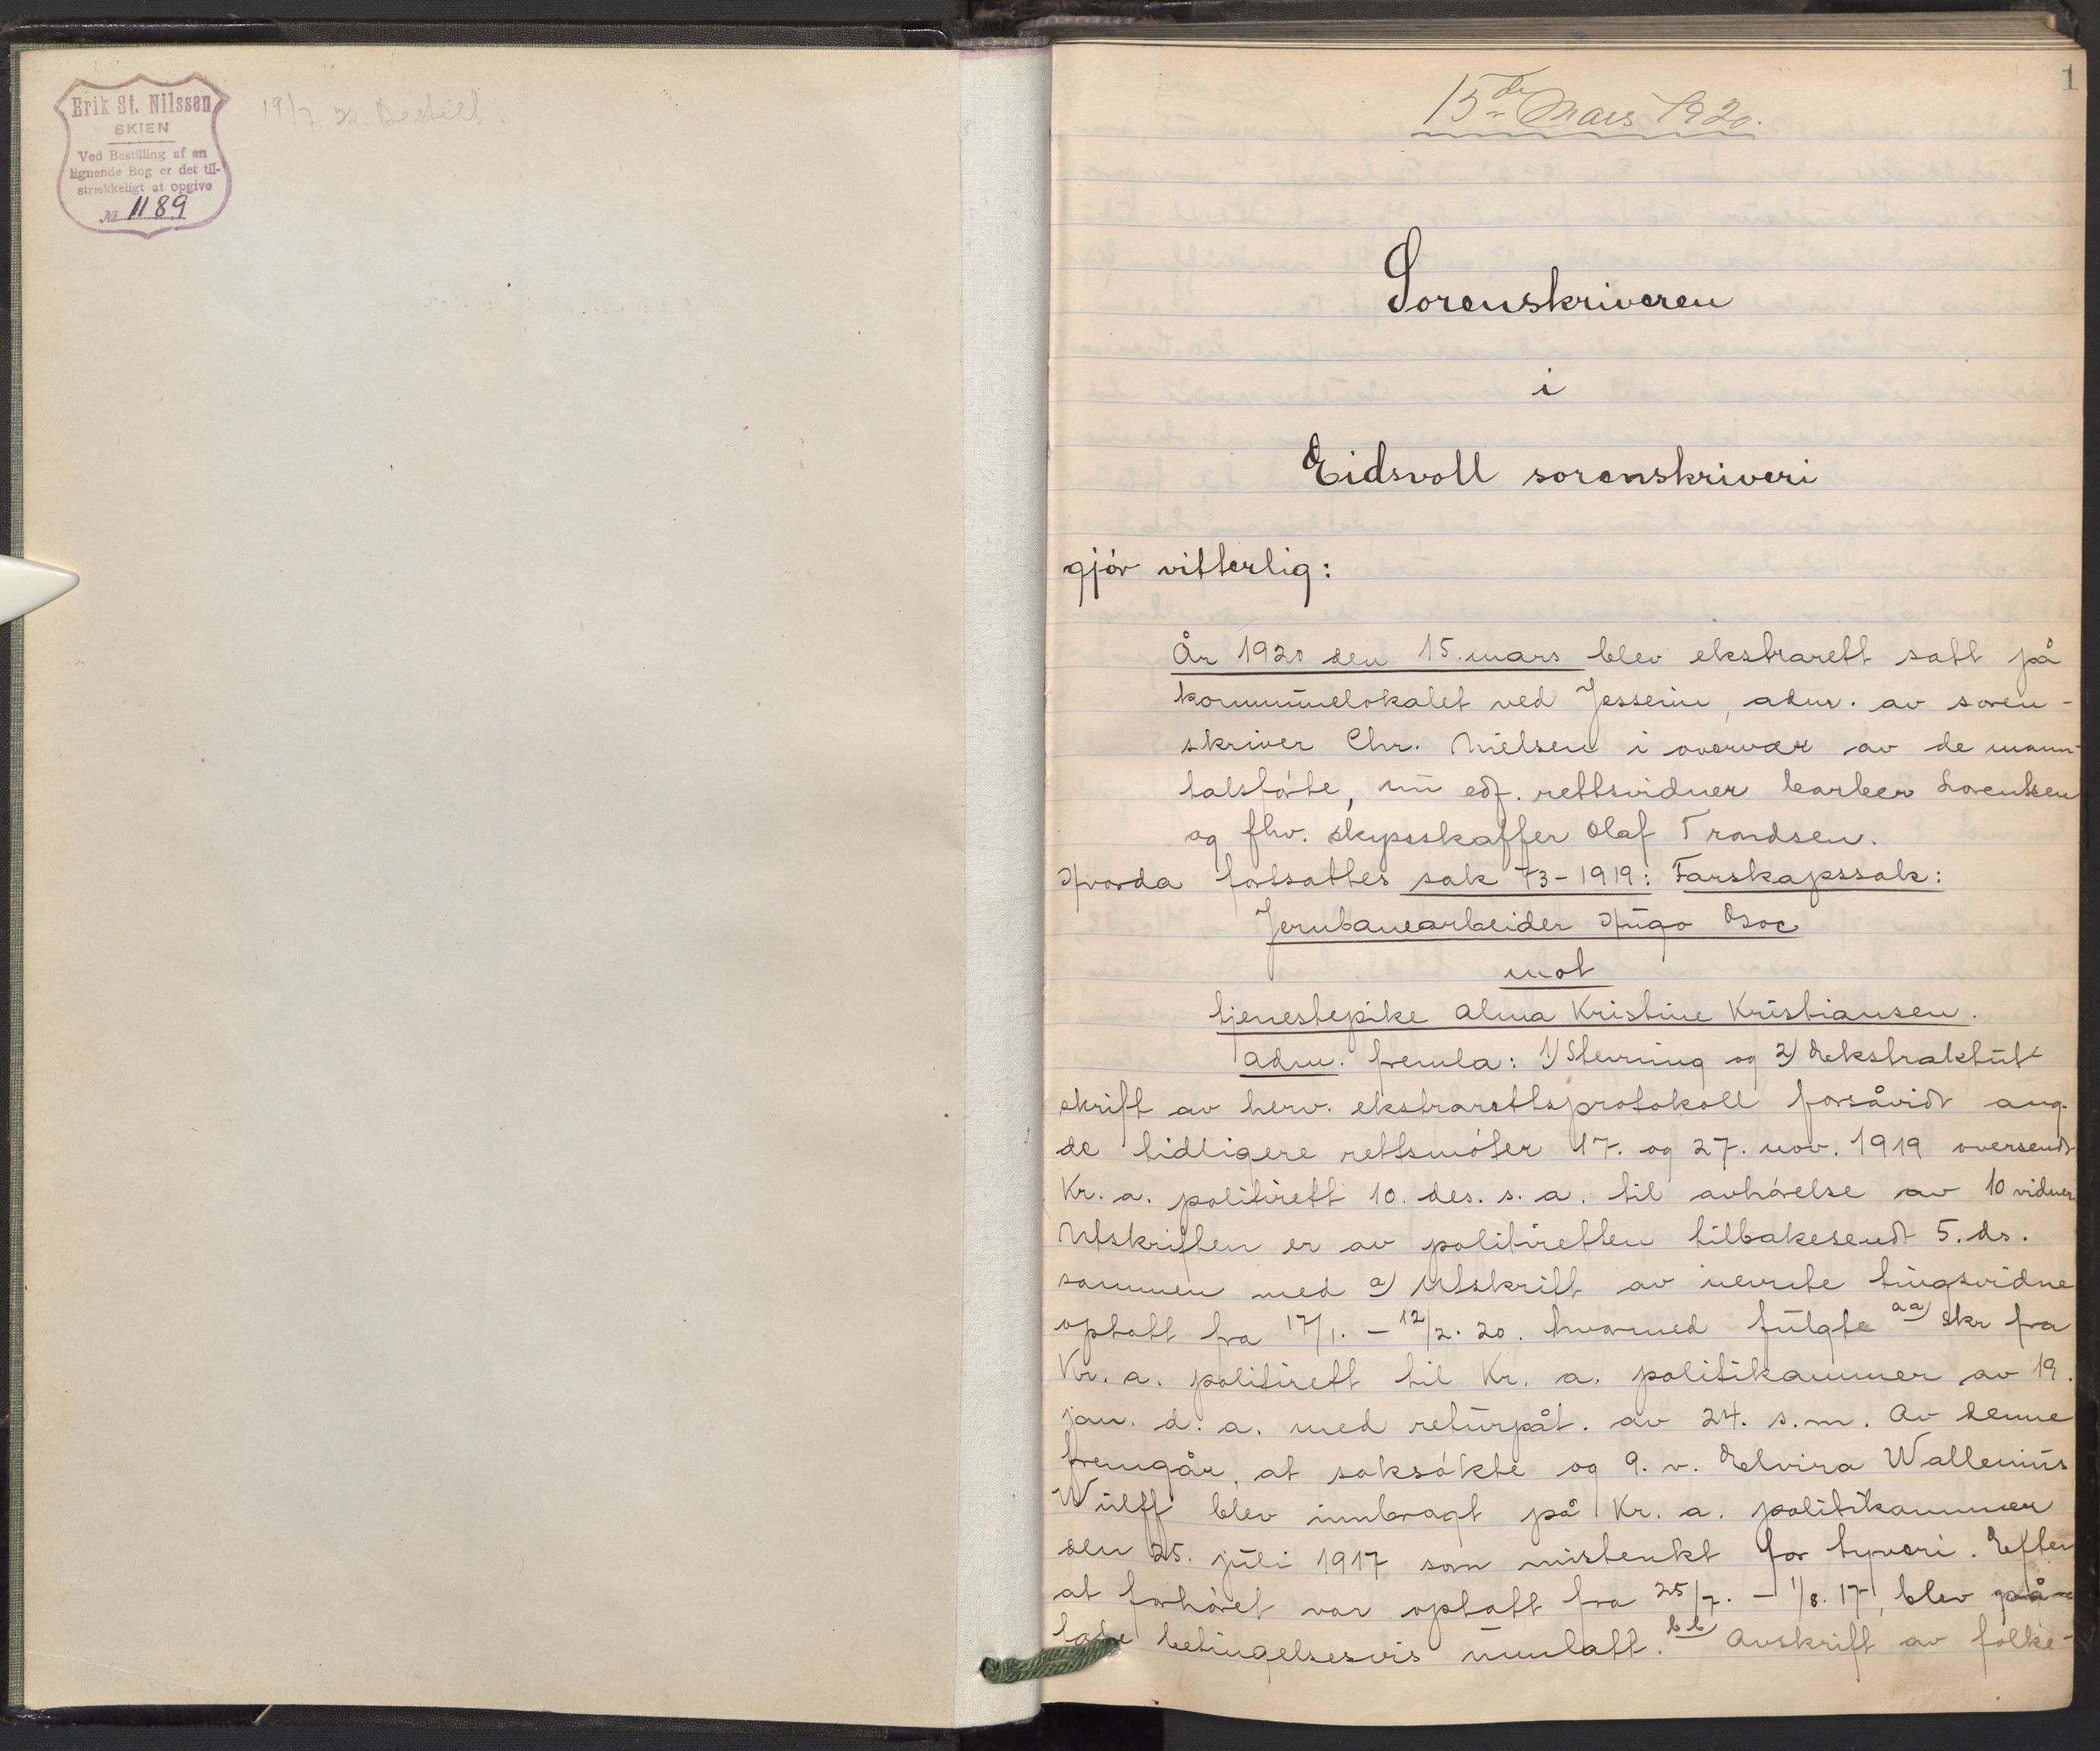 Erik St. Nilssen
SKIEN
Ved Bestilling af en
lignende Bog er det til-
strækkeligt at opgive
No 1189
19/7 22. Bestilt.
1
15de Mars 1920.
Sorenskriveren
i
Eidsvoll sorenskriveri
gjör vitterlig:
År 1920 den 15. mars blev ekstrarett satt på
kommunelokalet ved Jessheim, adm. av soren-
skriver Chr. Nielsen i overvær av de mann-
talsförte, nu edf. rettsvidner barber Lorentsen
og fhv. skysskaffer Olaf Trondsen.
Hvorda fortsattes sak 73-1919: Farskapssak:
Jernbanearbeider Hugo
mot
tjenestepike Alma Kristine Kristiansen.
Adm. fremla: 1) Stevning og 2) Ekstraktut-
skrift av herv. ekstrarettsprotokoll forsåvidt ang-
de tidligere rettsmöter 17. og 27. nov. 1919 oversendt
Kr. a. politirett 10. des. s. a. til avhörelse av 10 vidner
Utskriften er av politiretten tilbakesendt 5. ds.
sammen med a) Utskrift av nevnte tingsvidne
optatt fra 17/1. - 12/2. 20. hvormed fulgte aa) skr fra
Kr. a. politirett til Kr. a. politikammer av 19.
jan. d. a. med returpåt. av 24. s. m. Av denne
fremgår, at saksökte og 9. v. Elvira Wallenius
Wulff blev innbragt på Kr. a. politikammer
den 25. juli 1917 som mistenkt for tyveri. Efter
at forhöret var optatt fra 25/7. - 1/8. 17, blev på-
tale betingelsesvis unnlatt. bb) Avskrift av folke-